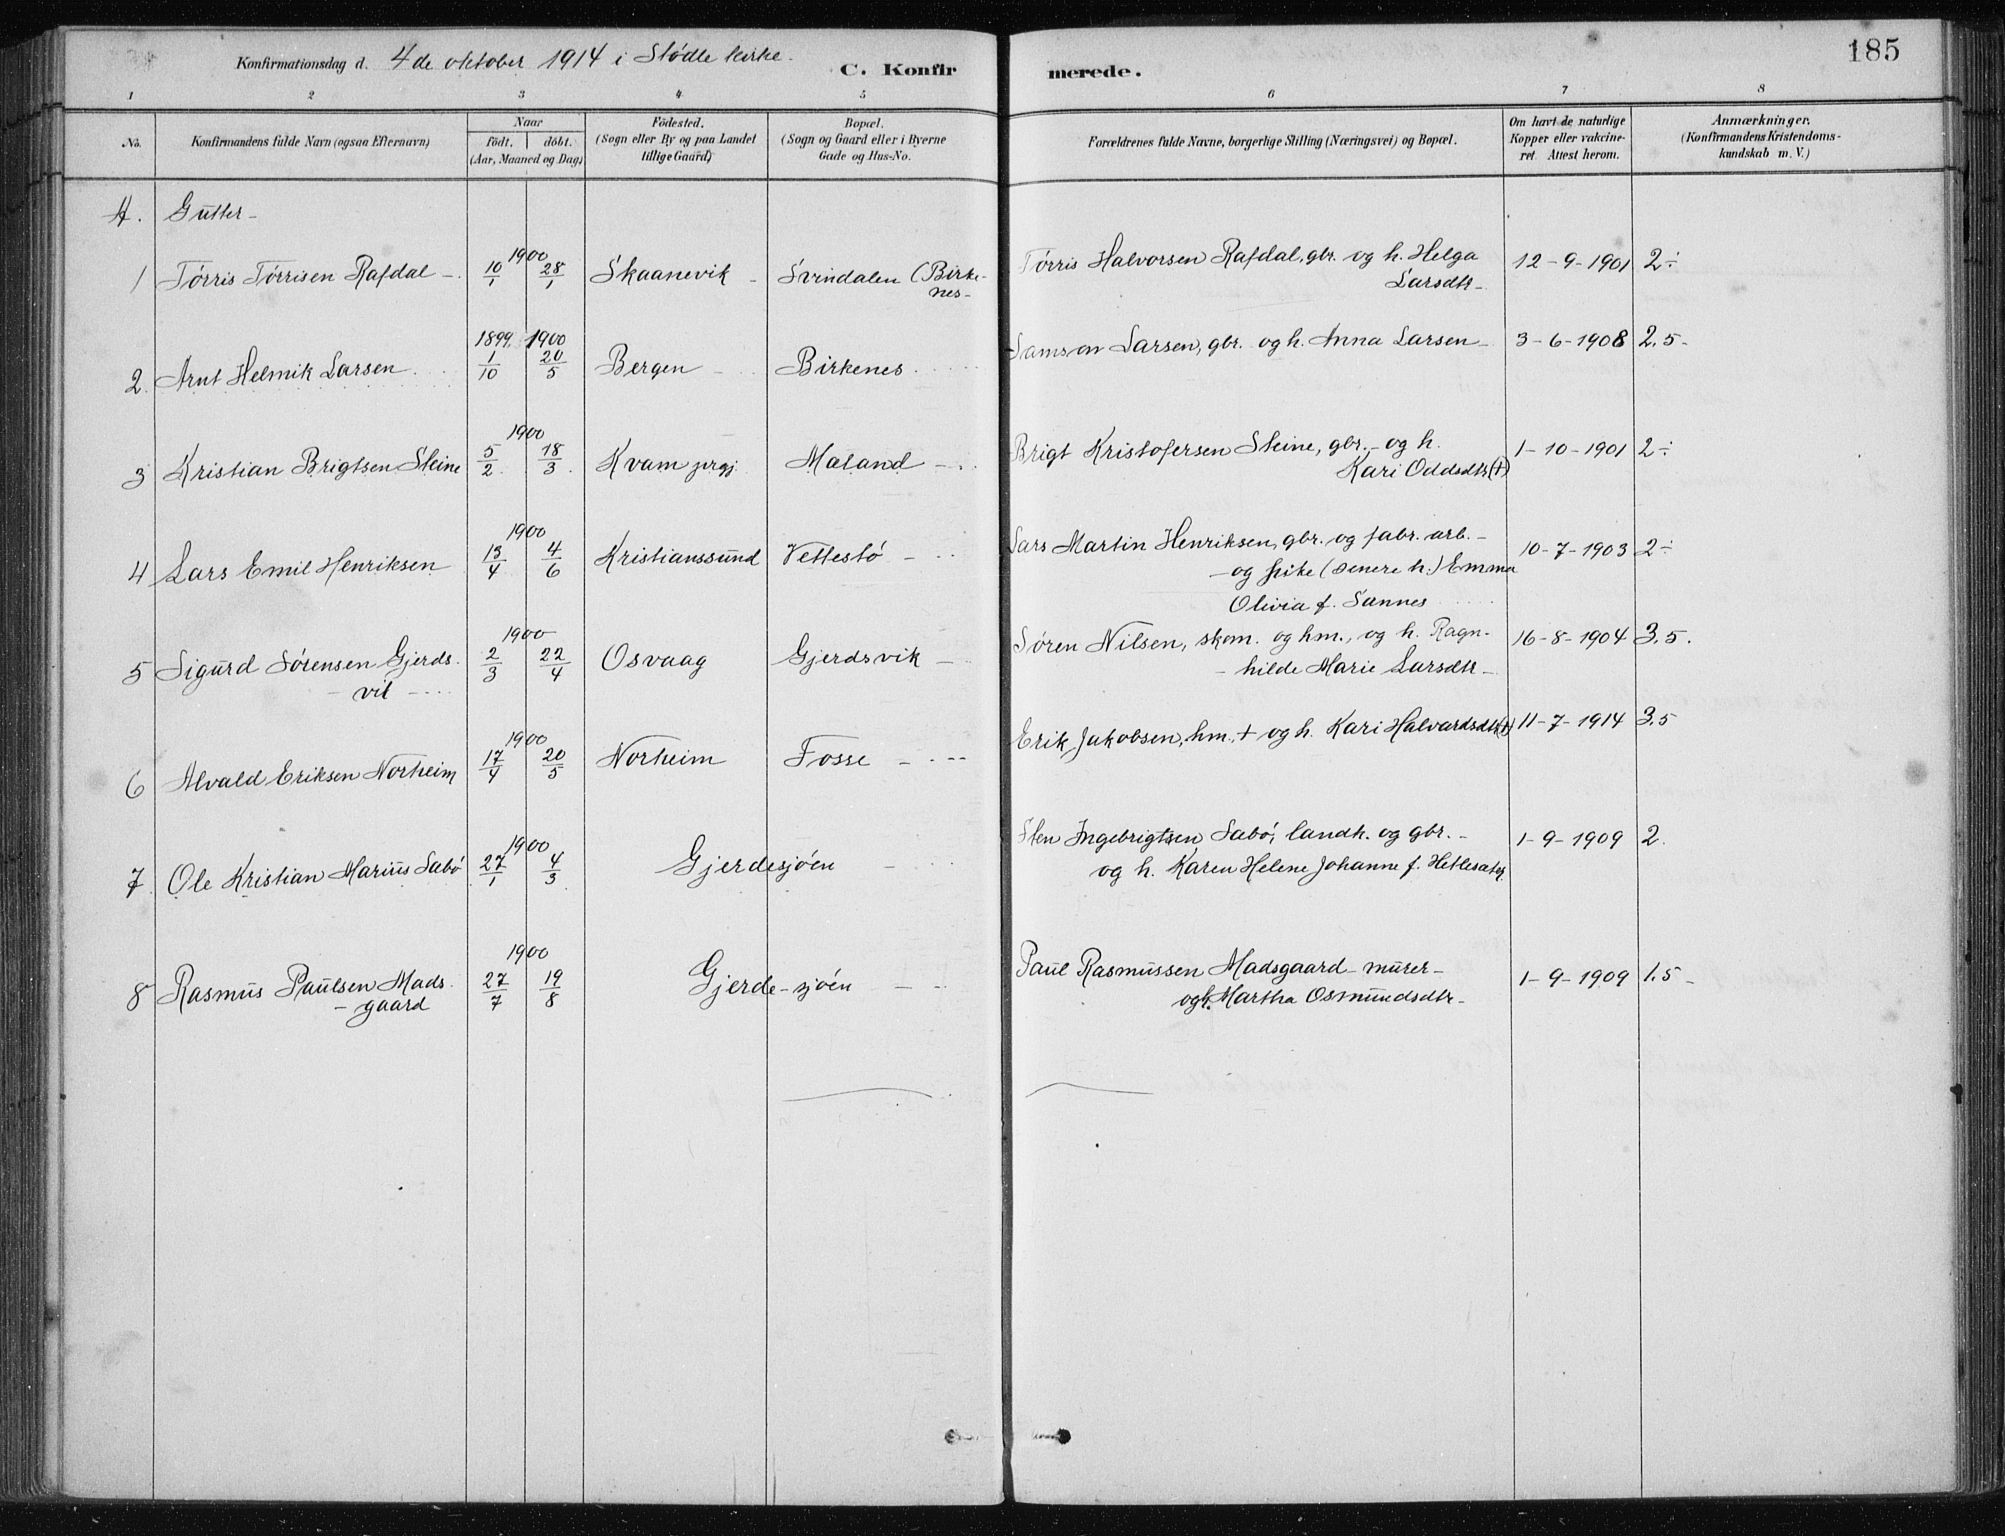 Konfirmationsdag d. 4de oktober 1914 i Stødle kirke.
C. Konfirmerede.
185
1 2 3 4 5 6 7 8
No.
Konfirmandens fulde Navn (ogsaa Efternavn)
Naar
födt. döbt.
(Aar, Maaned og Dag)
Födested.
(Sogn eller By og paa Landet
tillige Gaard)
Bopæl.
(Sogn og Gaard eller i Byerne
Gade og Hus-No.
Forældrenes fulde Navne, borgerlige Stilling (Næringsvei) og Bopæl.
Om havt de naturlige
Kopper eller vakcine-
ret. Attest herom.
Anmærkninger.
(Konfirmandens Kristendoms-
kundskab m. V.)
A. Gutter-
1 Tørris Tørrisen Rafdal - 1900 10/1 28/1 Skaanevik - Svindalen (Birke-
nes-
Tørris Halvorsen Rafdal, gbr. og h. Helga
Larsdtr-
12-9-1901 2÷
2. Arnt Helmik Larsen 1899 1/10 1900 20/5 Bergen - Birkenes
Samson Larsen, gbr. og h. Anna Larsen- 3-6-1908 2.5-
3 Kristian Brigtsen Steine 1900 5/2 18/3 Kvam prgj. Maland -
Brigt Kristofersen Steine, gbr. - og h.
Kari Oddsdtr (+)
1-10-1901 2÷
4 Lars Emil Henriksen 1900 13/4 4/6 Kristianssund Vettestø -
Lars Martin Henriksen, gbr. og fabr. arb. -
- og pike (senere h.) Emma
Olivia f. Sannes
10-7-1903 2÷
5 Sigurd Sørensen Gjerds-
- vik -
1900 2/3 22/4 Osvaag Gjerdsvik -
Søren Nilsen, skom. og hm., og h. Ragn-
- hilde Marie Larsdtr -
16-8-1904 3.5.
6 Alvald Eriksen Norheim 1900 17/4 20/5 Norheim Fosse -
Erik Jakobsen, hm. + og h. Kari Halvardsdtr (+) 11-7-1914 3.5
7. Ole Kristian Marius Sabø 1900 27/1 4/3 Gjerdesjøen -
Sten Ingebrigtsen Sabø, landh. og gbr. -
og h. Karen Helene Johanne f. Hetlesæter
1-9-1909 2.
8 Rasmus Paulsen Mads-
- gaard
1900 27/7 19/8 Gjerde-sjøen -
Paul Rasmussen Madsgaard - murer -
og h. Martha Osmundsdtr -
1-9-1909 1.5-